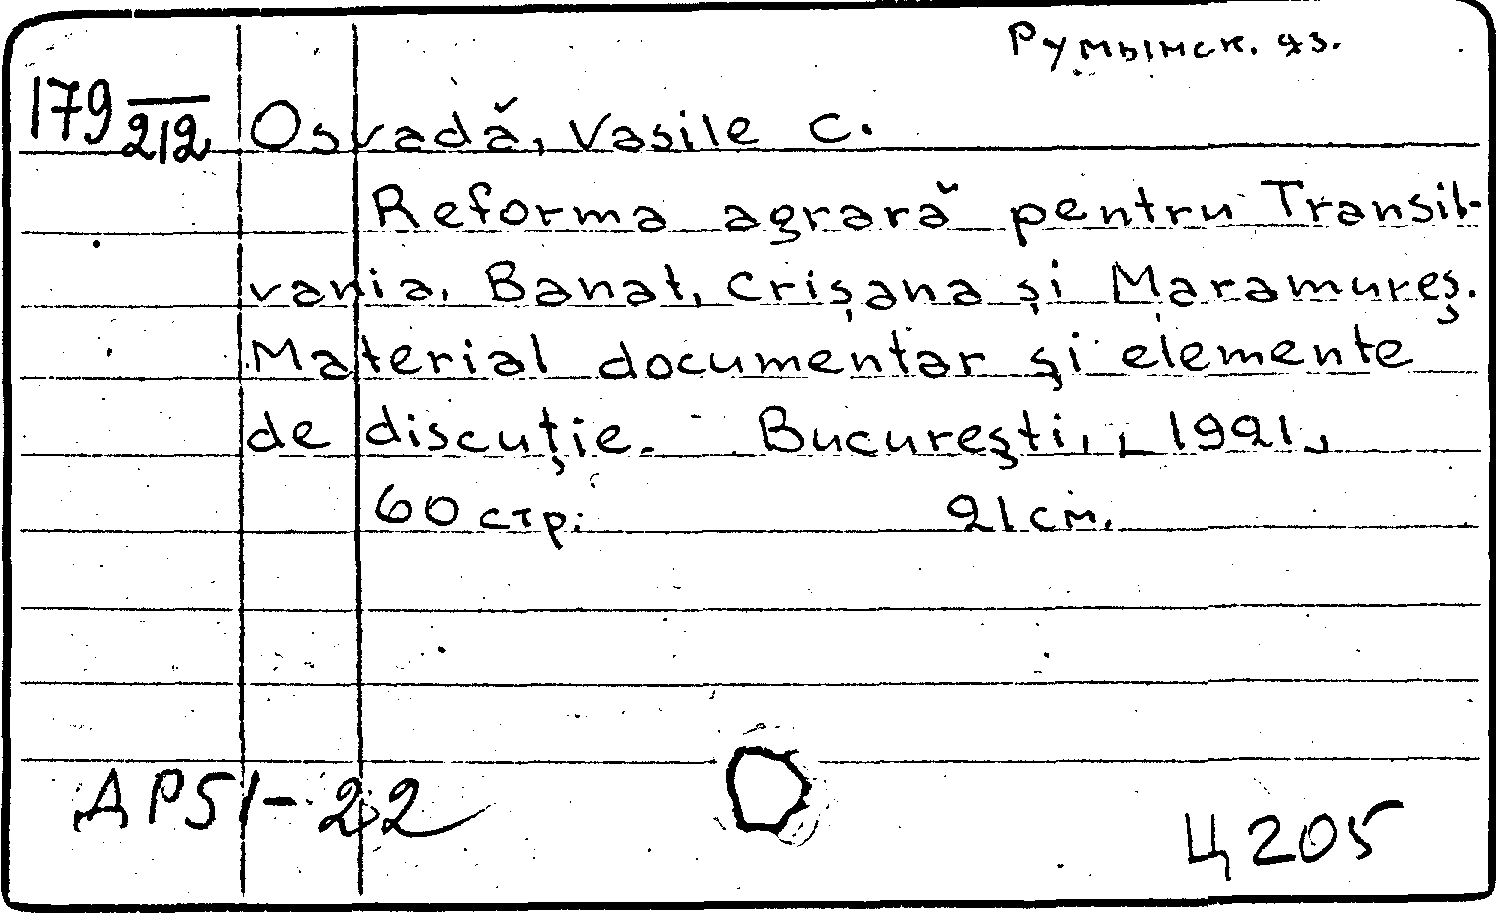 Румынск. яз.
179 212 Osvadă, Vasile C.
Reforma agrară pentru Transil-
vania, Banat, Crișana și Maramureș.
Material documentar și elemente
de discuție. București, [1921]
60 стр. 21 см.
ДР51-22
Ц 205